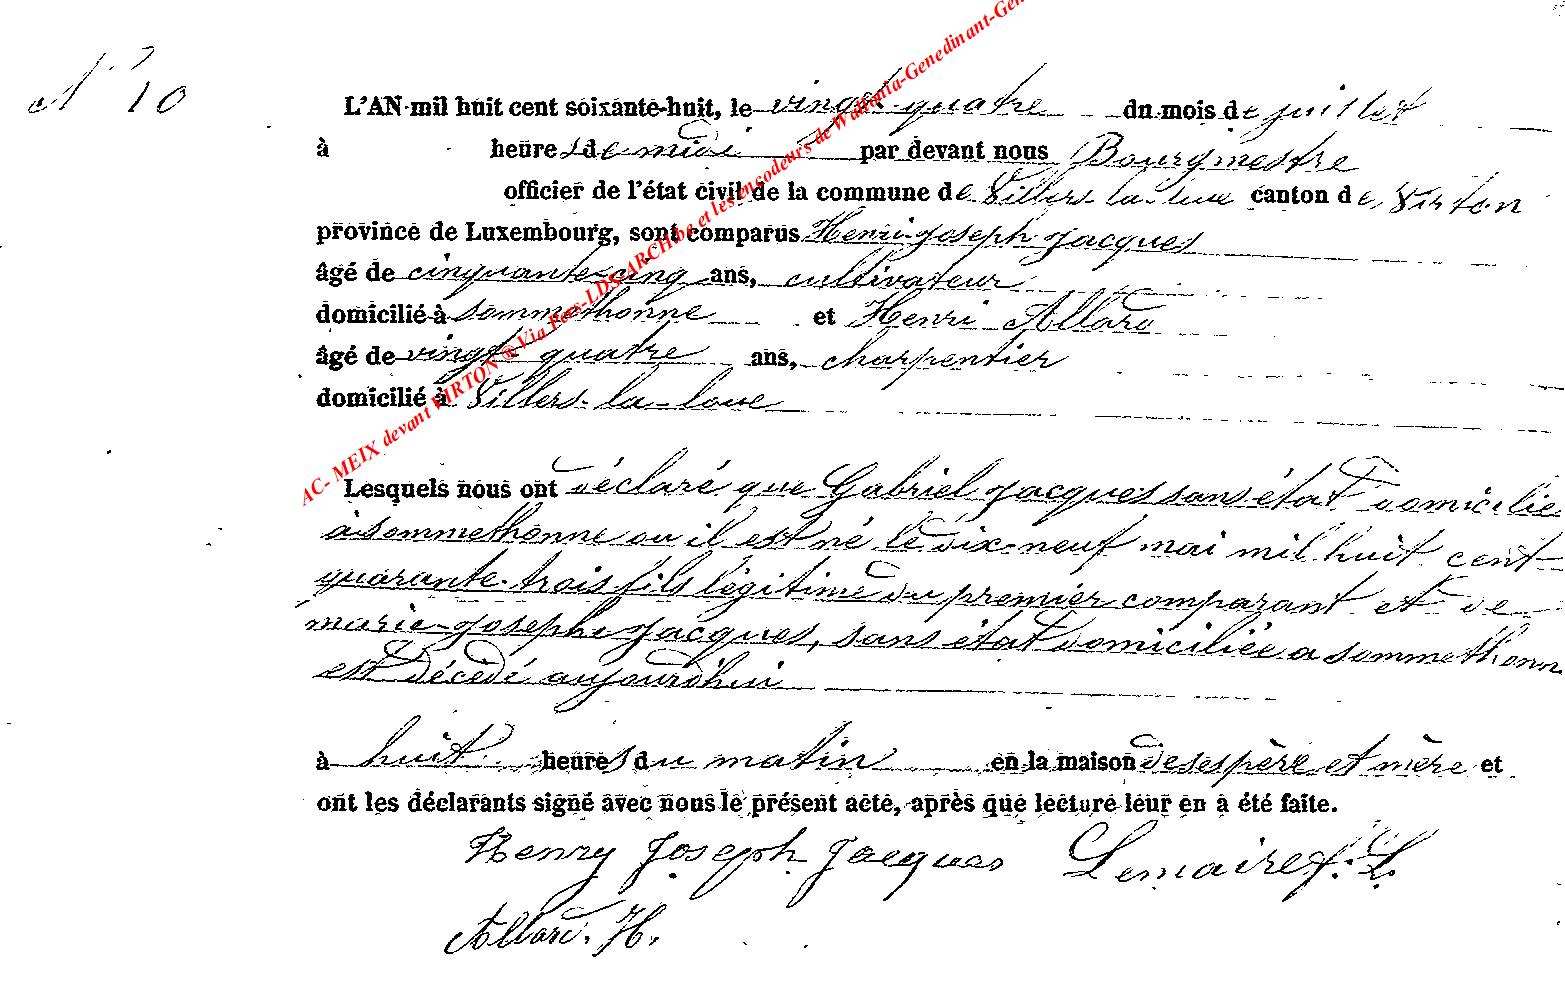 N° 10
L'AN mil huit cent soixante-huit, le vingt quatre du mois de juillet
à heures de midi par devant nous Bourgmestre
officier de l'état civil de la commune de Villers-la-loue canton de Virton
province de Luxembourg, sont comparus Henri-joseph jacques
âgé de cinquante-cinq ans, cultivateur
domicilié à sommethonne et Henri Allard
âgé de vingt quatre ans, charpentier
domicilié à Villers-la-loue
Lesquels nous ont déclaré que Gabriel jacques sans état domicilié
à sommethonne ou il est né le dix-neuf mai mil huit cent
quarante-trois fils légitime du premier comparant et de
marie-josephe jacques, sans état domiciliée a sommethonne
est décédé aujourd'hui
à huit heures du matin en la maison de ses père et mère et
ont les déclarants signé avec nous le présent acte, après que lecture leur en a été faite.
Henry Joseph Jacques Lemaire
Allard. H.
AC- MEIX devant VIRTON ® Via Fees-LDS-ARCHbe et les encodeurs de Wallonia-Genedinant-Gen